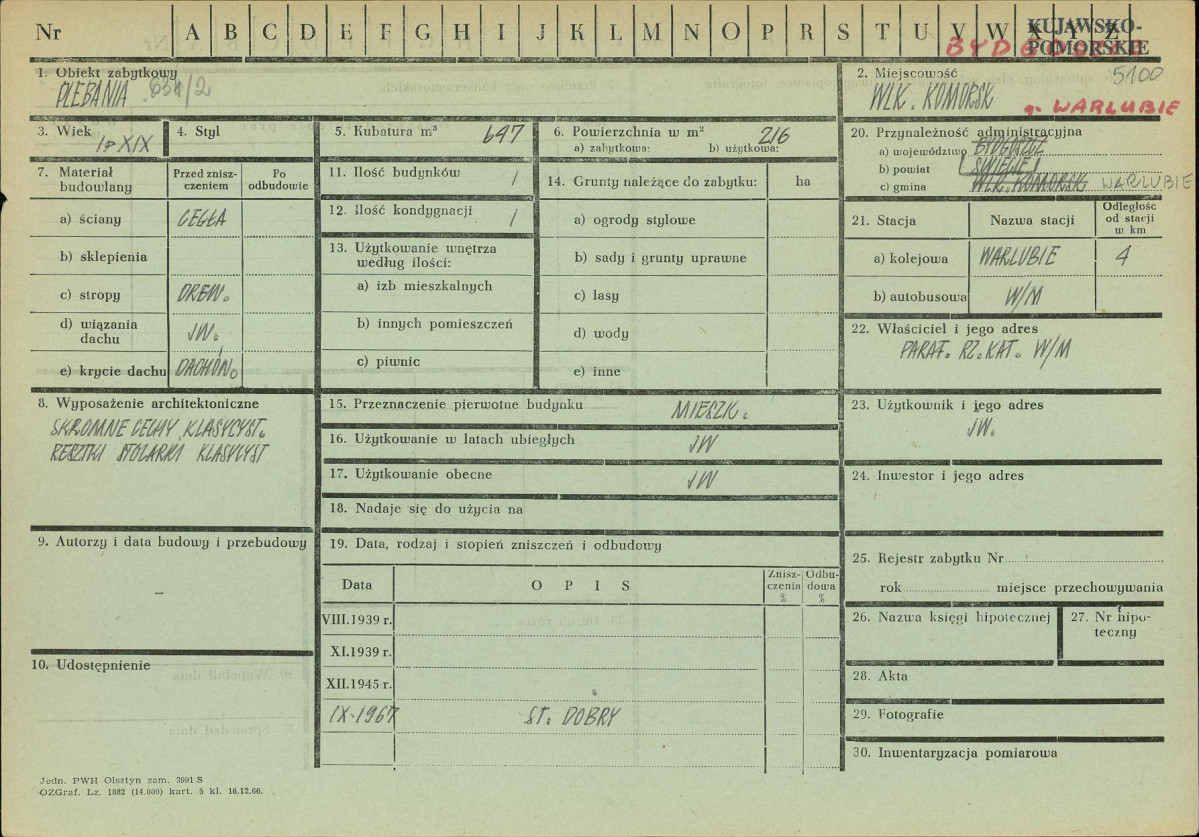 Nr A B C D E F G H I J K L M N O P R S T U V W X Y Z
KUJAWSKO-
POMORSKIE
1. Obiekt zabytkowy
PLEBANIA 654/2
2. Miejscowość 5100
WLK. KOMORSK
g. WARLUBIE
3. Wiek
I p XIX
4. Styl
5. Kubatura m³ 647
6. Powierzchnia w m² 216
a) zabytkowa: b) użytkowa:
20. Przynależność administracyjna
a) województwo BYDGOSZCZ
b) powiat ŚWIECIE
c) gmina WLK. KOMORSK WARLUBIE
7. Materiał
budowlany
Przed znisz-
czeniem
Po
odbudowie
a) ściany CEGŁA
b) sklepienia
c) stropy DREW.
d) wiązania
dachu JW.
e) krycie dachu DACHÓW.
11. Ilość budynków 1
12. Ilość kondygnacji 1
13. Użytkowanie wnętrza
według ilości:
a) izb mieszkalnych
b) innych pomieszczeń
c) piwnic
14. Grunty należące do zabytku: ha
a) ogrody stylowe
b) sady i grunty uprawne
c) lasy
d) wody
e) inne
21. Stacja Nazwa stacji
Odległość
od stacji
w km
a) kolejowa WARLUBIE 4
b) autobusowa W/M
22. Właściciel i jego adres
PARAF. RZ. KAT. W/M
8. Wyposażenie architektoniczne
SKROMNE CECHY KLASYCYST.
RESZTKI STOLARKI KLASYCYST
15. Przeznaczenie pierwotne budynku MIESZK.
16. Użytkowanie w latach ubiegłych JW
17. Użytkowanie obecne JW
18. Nadaje się do użycia na
23. Użytkownik i jego adres
JW.
24. Inwestor i jego adres
9. Autorzy i data budowy i przebudowy
–
10. Udostępnienie
19. Data, rodzaj i stopień zniszczeń i odbudowy
Data OPIS
Znisz-
czenia
%
Odbu-
dowa
%
VIII.1939 r.
XI.1939 r.
XII.1945 r.
IX.1967 ST. DOBRY
25. Rejestr zabytku Nr
rok miejsce przechowywania
26. Nazwa księgi hipotecznej
27. Nr hipo-
teczny
28. Akta
29. Fotografie
30. Inwentaryzacja pomiarowa
Jedn. PWH Olsztyn zam. 3991 S
OZGraf. Lz. 1882 (14.000) kart. 5 kl. 16.12.66.